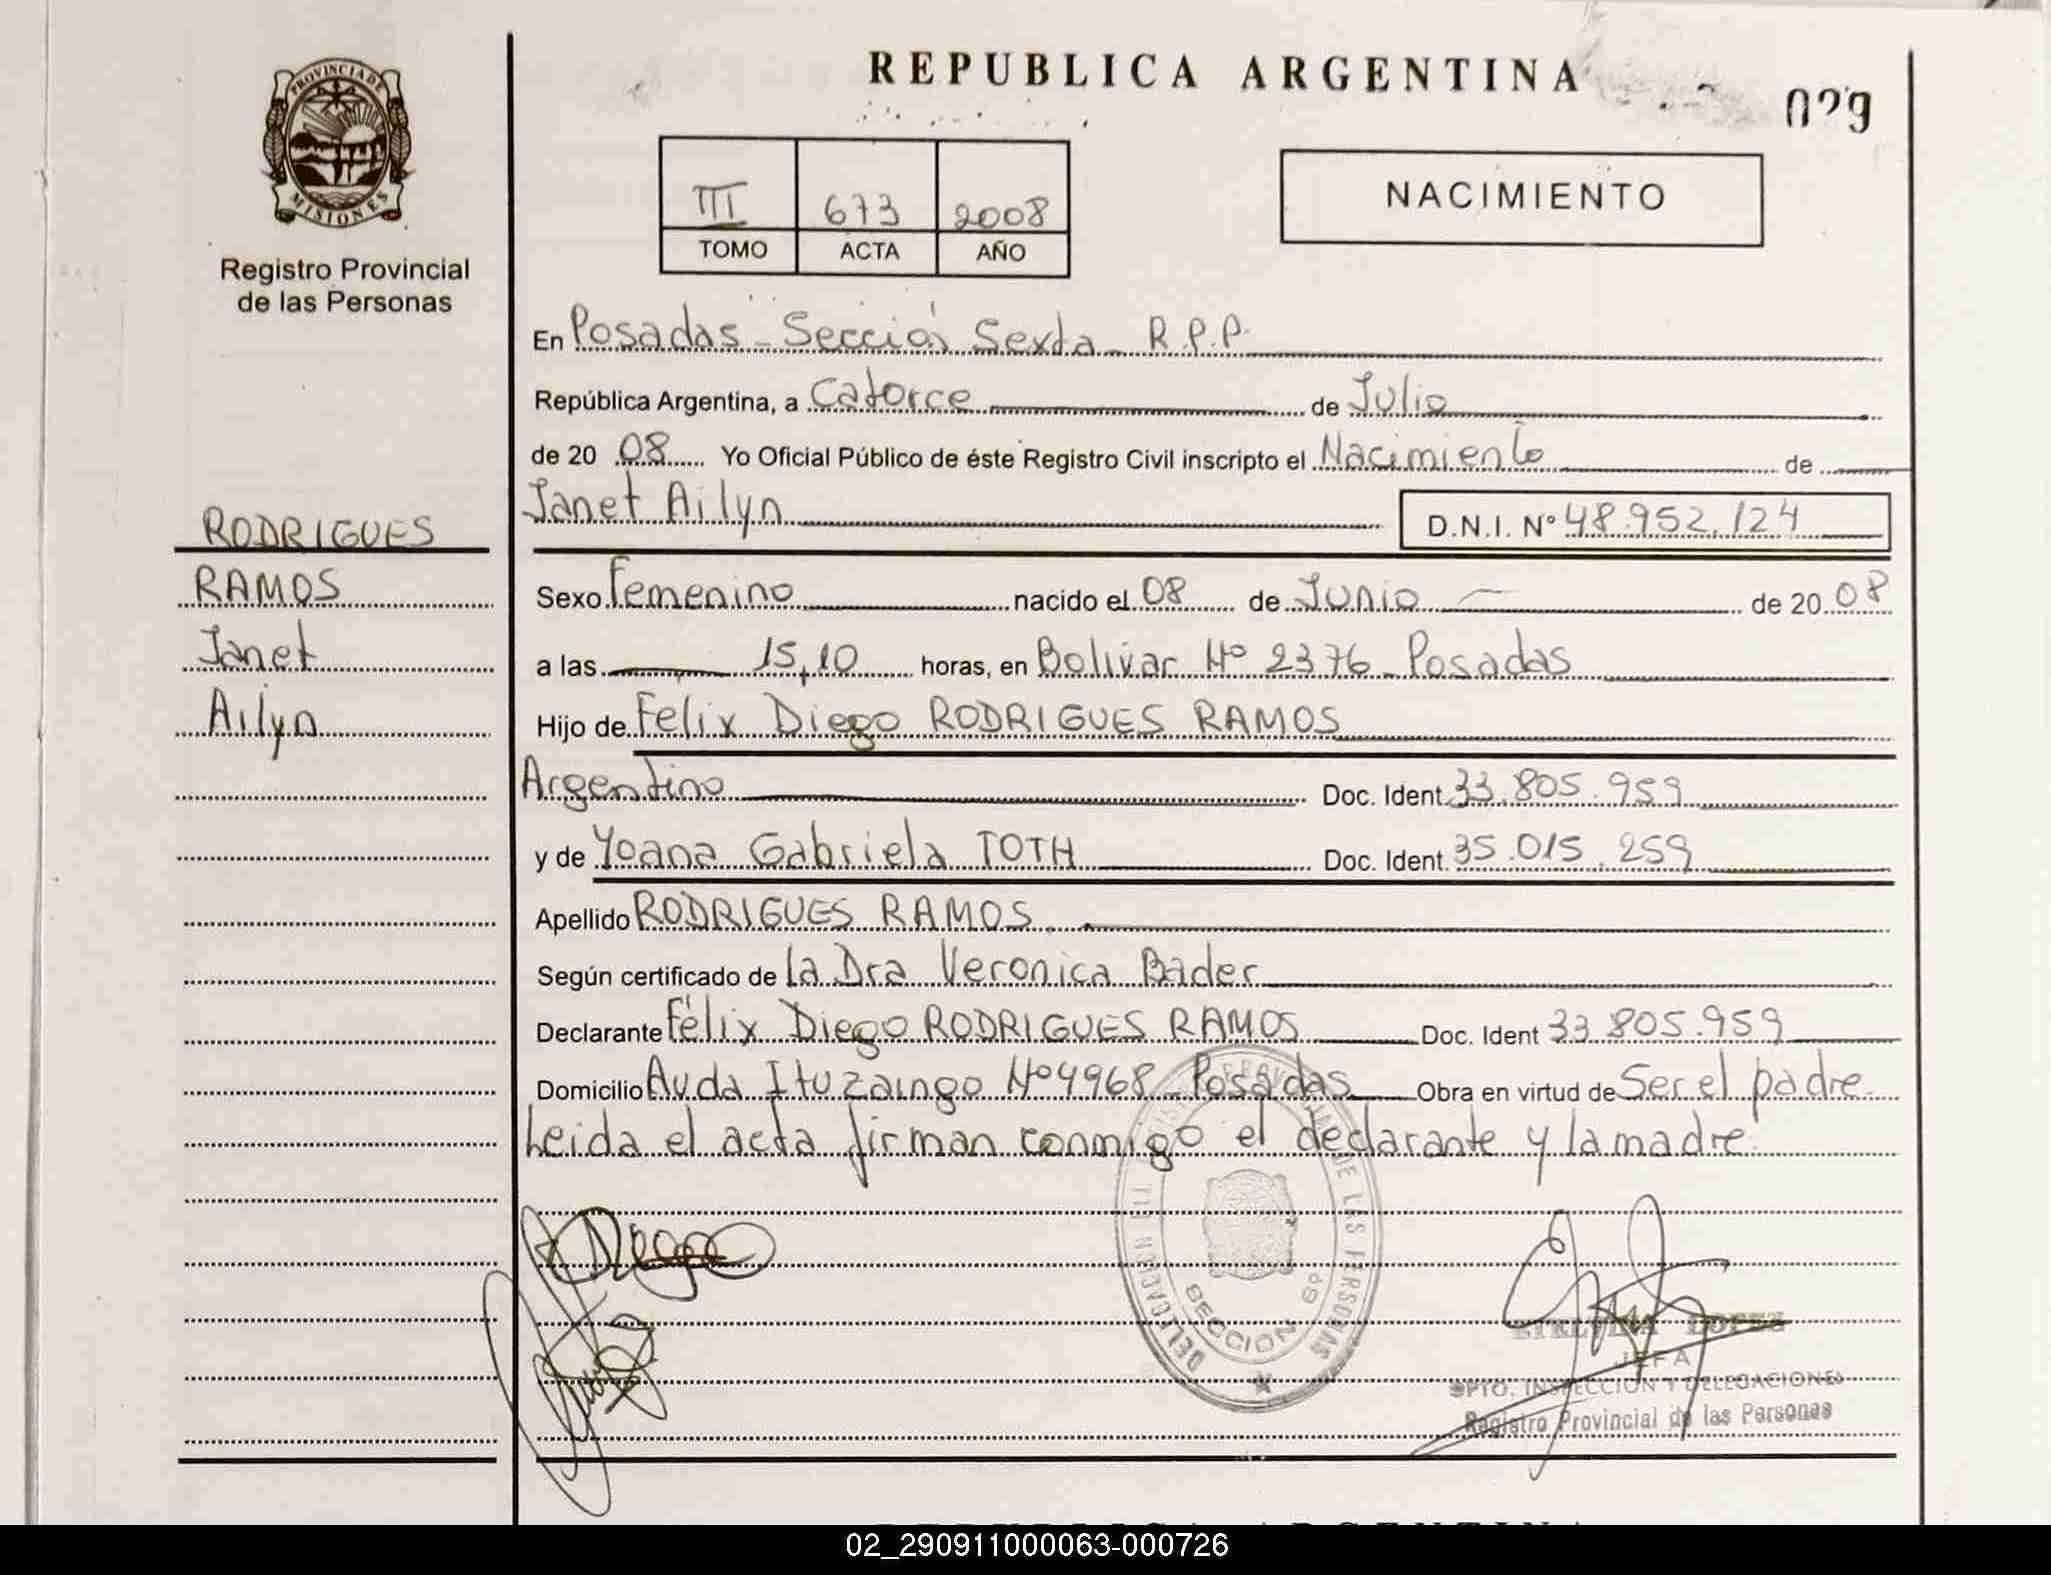 REPUBLICA ARGENTINA
029
PROVINCIA DE
MISIONES
Registro Provincial
de las Personas
III 673 2008
TOMO ACTA AÑO
NACIMIENTO
En Posadas - Sección Sexta - R.P.P.
República Argentina, a Catorce de Julio
de 20 08 Yo Oficial Público de éste Registro Civil inscripto el Nacimiento de
Janet Ailyn D.N.I. Nº 48.952.124
RODRIGUES
RAMOS
Janet
Ailyn
Sexo Femenino nacido el 08 de Junio de 20 08
a las 15,10 horas, en Bolivar Nº 2376 - Posadas
Hijo de Felix Diego RODRIGUES RAMOS
Argentino Doc. Ident. 33.805.959
y de Yoana Gabriela TOTH Doc. Ident. 35.015.259
Apellido RODRIGUES RAMOS
Según certificado de la Dra Veronica Bader
Declarante Félix Diego RODRIGUES RAMOS Doc. Ident 33.805.959
Domicilio Avda Ituzaingo Nº 4968 - Posadas Obra en virtud de Ser el padre.
Leida el acta firman conmigo el declarante y la madre.
Diego
DE LAS PERSONAS
DELEGACION
SECCION 6º
ETELVINA LOPEZ
JEFA
DPTO. INSPECCION Y DELEGACIONES
Registro Provincial de las Personas
02_290911000063-000726